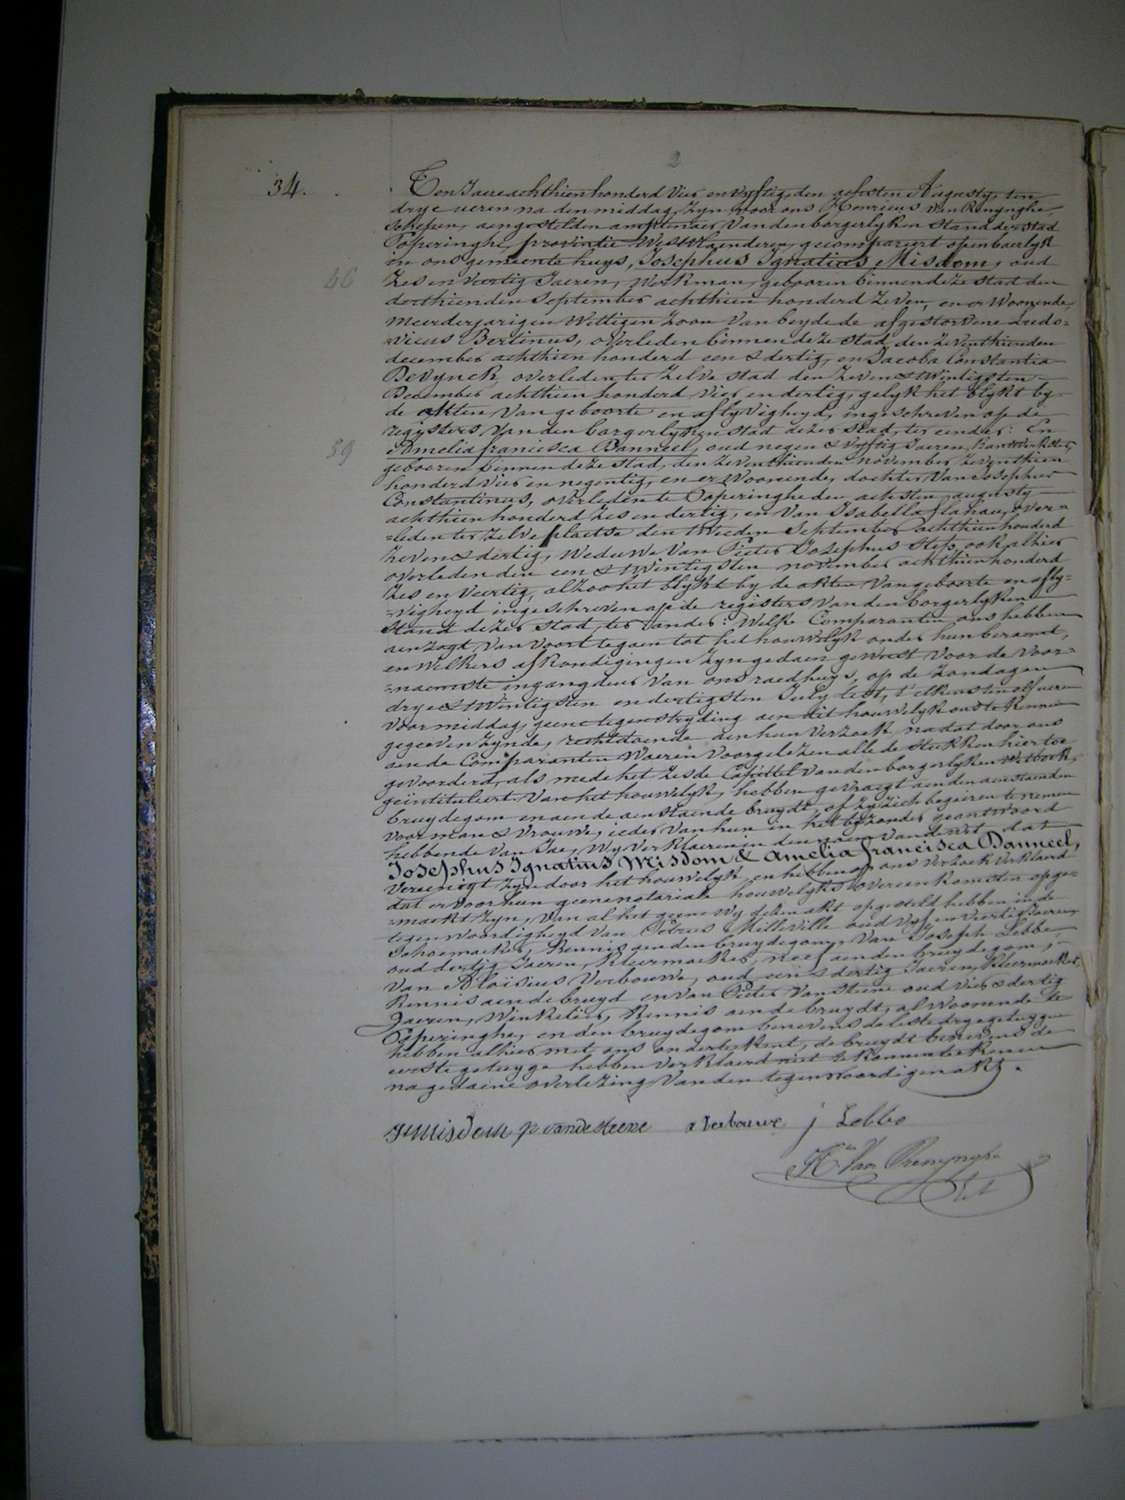 2
34.
Ten Jaere achthien honderd vier en vyftig, den achsten Augusty, ten
drye ueren na den middag, zyn voor ons Henricus Van Renynghe,
Schepen, aengestelden amptenaer van den borgerlyken stand der stad
Poperinghe, provintie Westvlaenderen, gecompareert openbaerlyk
in ons gemeente huys, Josephus Ignatius Misdom, oud
46
zes en veertig Jaeren, Werkman, gebooren binnen deze stad den
derthienden September achthien honderd zeven, en er Woonende,
meerderjarigen Wettigen zoon van beyde de afgestorvene Ludo-
-vicus Bertinus, overleden binnen deze stad, den zeventhienden
december achthien honderd een & dertig, en Jacoba Constantia
Devynck, overleden ter zelve stad den zeven & twintigsten
December achthien honderd vier en dertig, gelyk het blykt by
de akten van geboorte en aflyvigheyd, ingeschreven op de
registers van den borgerlyken stad dezer stad, ter eender: En
59
Amelia francisca Danneel, oud negen & vyftig Jaeren,
gebooren binnen deze stad, den zeventhienden november zeventhien
honderd vier en negentig, en er Woonende, dochter van Josephus
Constantinus, overleden te Poperinghe den achsten augusty
achthien honderd zes en dertig, en van Isabella flahau, over-
-leden ter zelve plaetse den tweeden September achthien honderd
zeven & dertig, Weduwe van Pieter Josephus Steps, ook alhier
overleden den een & twintigsten november achthien honderd
zes en veertig, alzoo het blykt by de akten van geboorte en afly-
-vigheyd ingeschreven op de registers van den borgerlyken
stand dezer stad, ter ander: Welke Comparanten ons hebben
aenzogt, van voort te gaen tot het houwelyk onder hun beraemt,
en welkers afkondigingen zyn gedaen geweest voor de voor-
-naemste ingangdeur van ons raedhuys, op de zondagen
drye & twintigsten en dertigsten July lest, t'elkens ten elf ueren
voormiddag, geene tegenstryding aen dit houwelyk ons te kennen
gegeven zynde, rechtdoende aen hun verzoek, na dat door ons
aen de Comparanten waeren voorgelezen alle de stukken hier toe
gevoorderd, als mede het zesde Capittel van den borgerlyken Wetboek,
geintituleert Van het houwelyk, hebben gevraegt aen den aenstaenden
bruydegom en aen de aenstaende bruydt, of zy zich begeiren te nemen
voor man & vrouwe, ieder van hun in het byzonder geantwoord
hebbende van Jae, Wy verklaeren in den naem van de wet dat
Josephus Ignatius Misdom & Amelia francisca Danneel,
vereenigt zyn door het houwelyk, en hebben op ons verzoek verklaerd
dat er voor hun geene notariale houwelyks overeenkomsten opge-
-maekt zyn, van al het geene wy dezen akt opgesteld hebben in de
tegenwoordigheyd van Petrus Milleville oud vyf en veertig Jaeren
Schoemaeker, Kennis aen den bruydegom, van Joseph Lebbe,
oud dertig Jaeren, Kleermaeker, neef aen den bruydegom,
van Aloisius Verbouwe, oud een & dertig Jaeren, Kleermaeker,
Kennis aen de bruyd en van Pieter Vansteene oud vier & dertig
Jaeren, Winkelier, Kennis aen de bruydt, al woonende te
Poperinghe, en den bruydegom benevens de leste drye getuygen
hebben alhier met ons onderteekent, de bruydt benevens de
eerste getuyge hebben verklaerd niet te konnen teekenen
na gedaene overlezing van den tegenwoordigen akt.
J Misdom p vandesteene a Verbouwe j Lebbe
Hri Van Renynghe